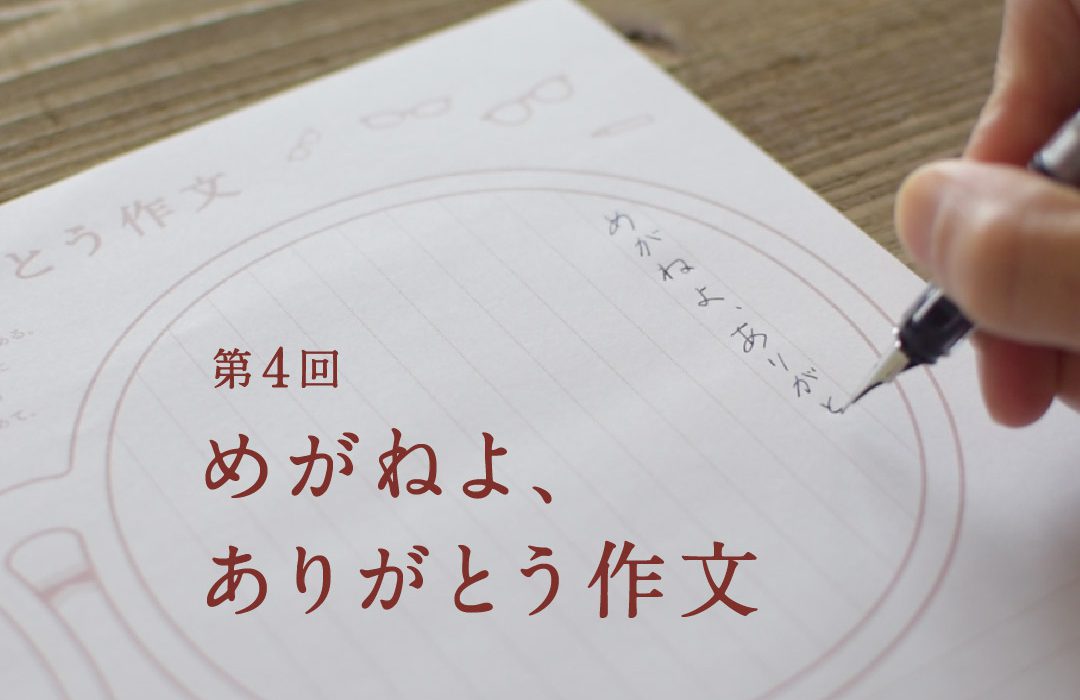 とう作文
めがねよ、ありがと
第4回
めがねよ、
ありがとう作文